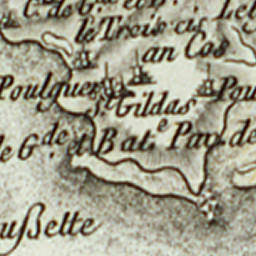 C. de G.
le Treis
an Cos
Poulguer
St. Gildas
Pou
le G. de
Bat.e Pau
de
ussette